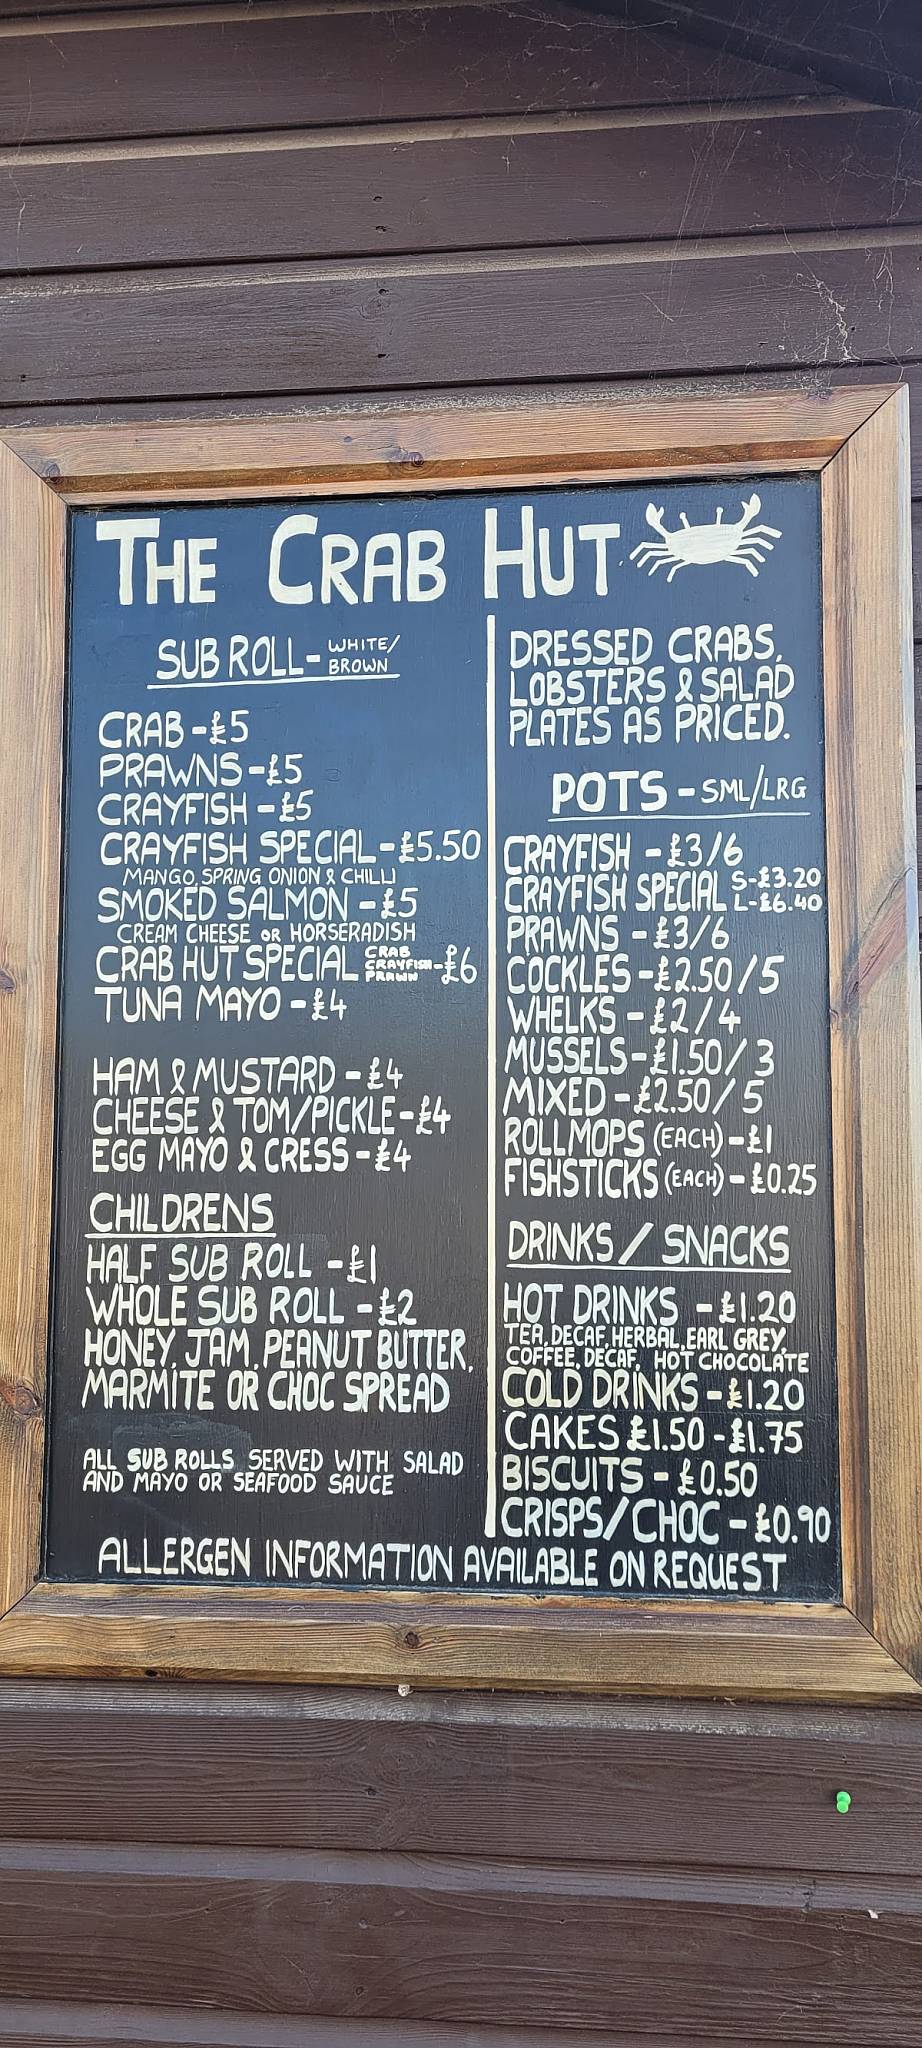 THE CRAB HUT
SUB ROLL - WHITE/
BROWN
CRAB - £5
PRAWNS - £5
CRAYFISH - £5
CRAYFISH SPECIAL - £5.50
MANGO, SPRING ONION & CHILLI
SMOKED SALMON - £5
CREAM CHEESE OR HORSERADISH
CRAB HUT SPECIAL CRAB
CRAYFISH - £6
PRAWN
TUNA MAYO - £4
HAM & MUSTARD - £4
CHEESE & TOM/PICKLE - £4
EGG MAYO & CRESS - £4
CHILDRENS
HALF SUB ROLL - £1
WHOLE SUB ROLL - £2
HONEY, JAM, PEANUT BUTTER,
MARMITE OR CHOC SPREAD
ALL SUB ROLLS SERVED WITH SALAD
AND MAYO OR SEAFOOD SAUCE
DRESSED CRABS,
LOBSTERS & SALAD
PLATES AS PRICED.
POTS - SML/LRG
CRAYFISH - £3/6
CRAYFISH SPECIAL S-£3.20
L-£6.40
PRAWNS - £3/6
COCKLES - £2.50/5
WHELKS - £2/4
MUSSELS - £1.50/3
MIXED - £2.50/5
ROLLMOPS (EACH) - £1
FISHSTICKS (EACH) - £0.25
DRINKS/SNACKS
HOT DRINKS - £1.20
TEA, DECAF, HERBAL, EARL GREY,
COFFEE, DECAF, HOT CHOCOLATE
COLD DRINKS - £1.20
CAKES £1.50 - £1.75
BISCUITS - £0.50
CRISPS/CHOC - £0.90
ALLERGEN INFORMATION AVAILABLE ON REQUEST